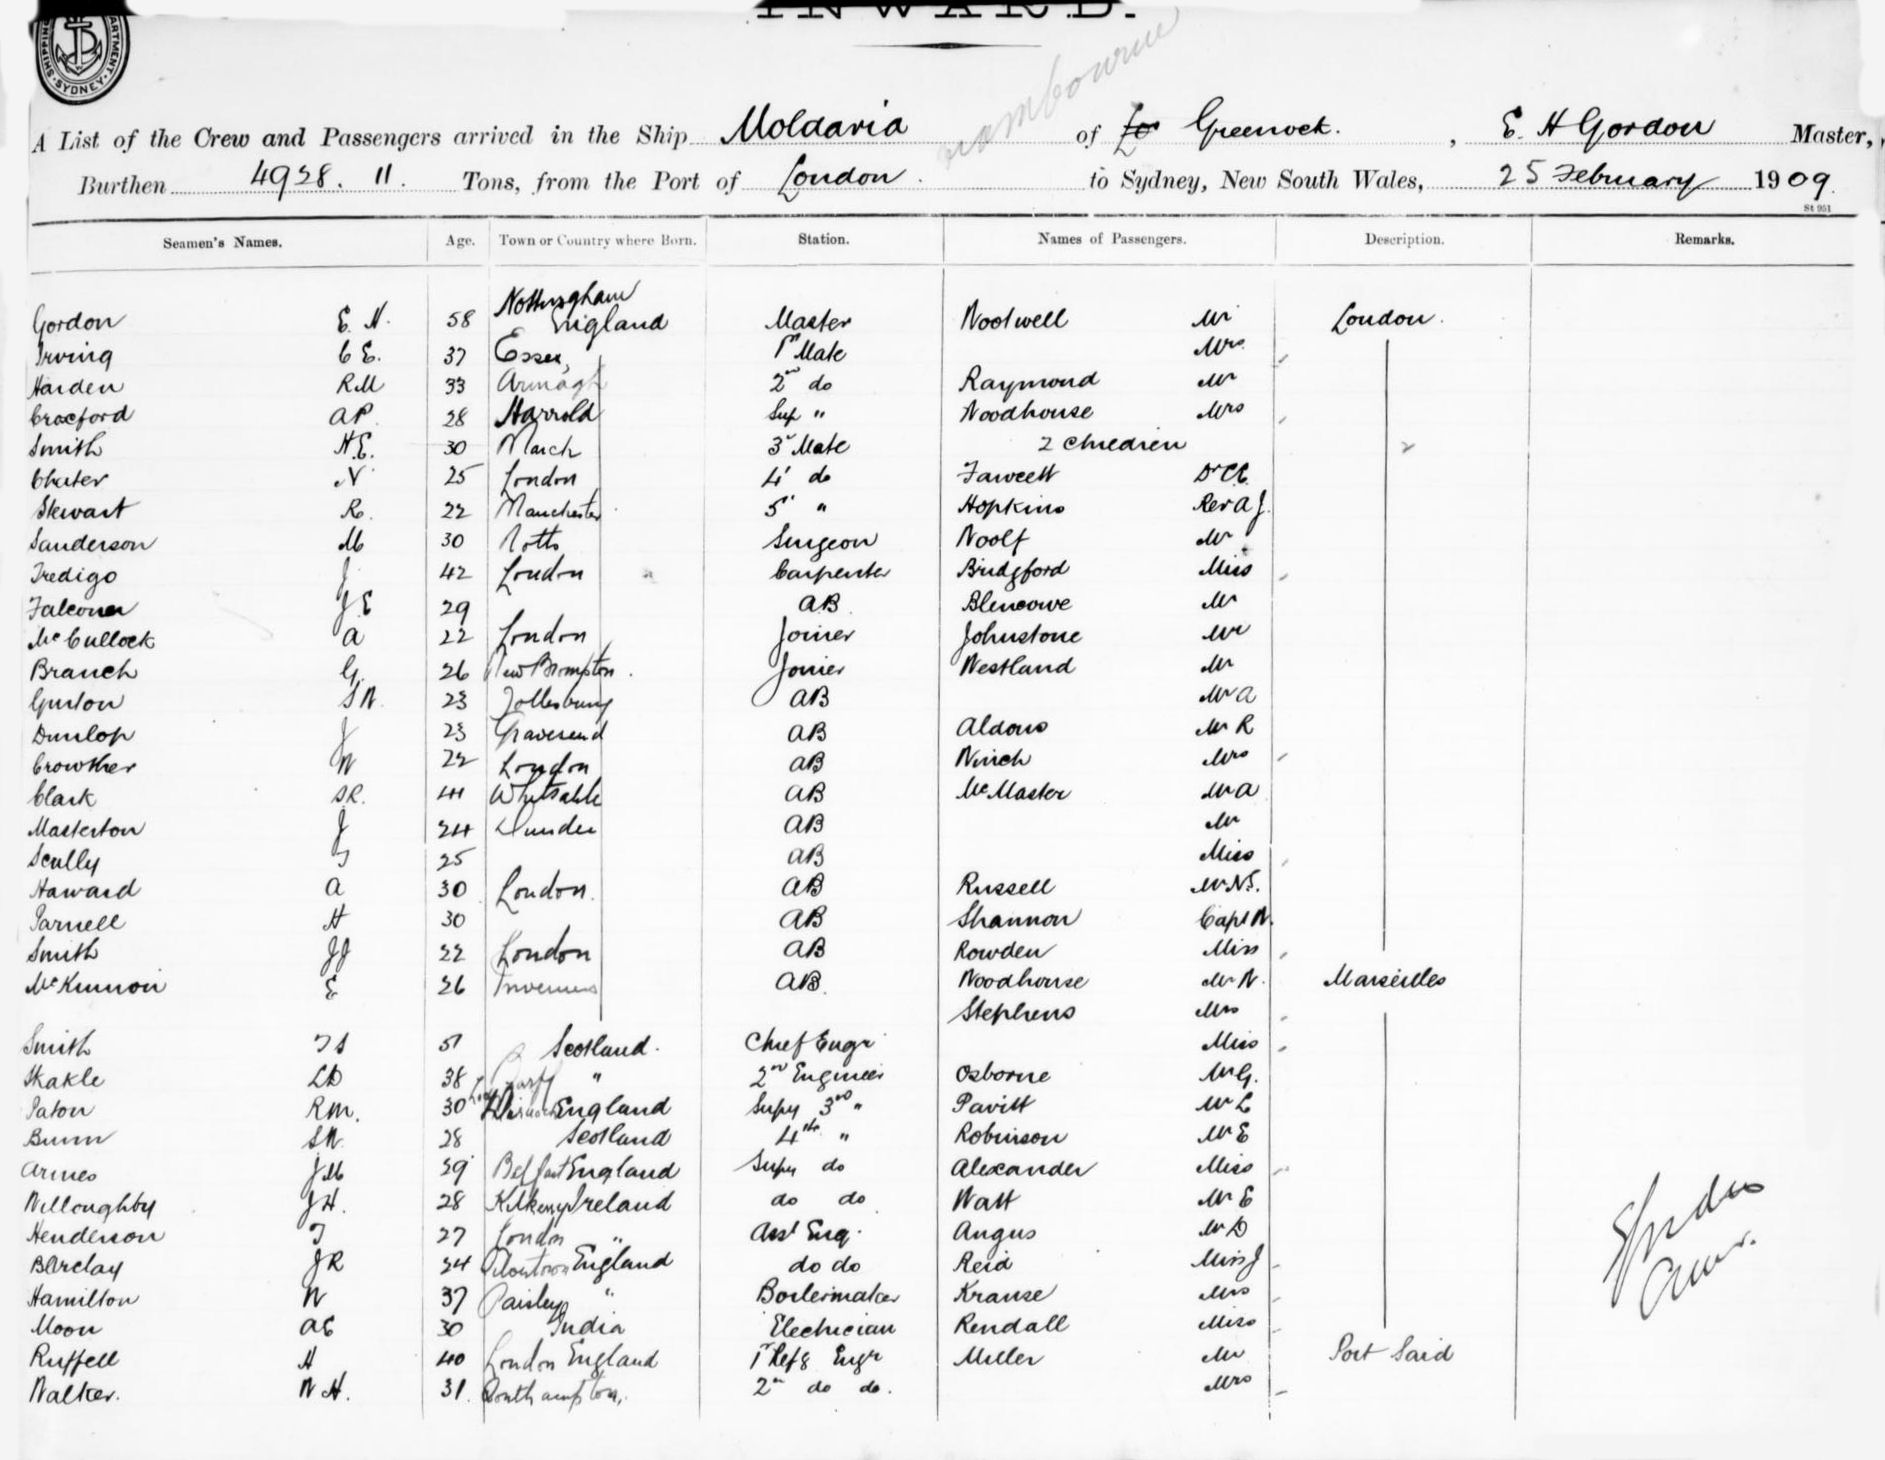 INWARD.
SHIPPING DEPARTMENT. SYDNEY
A List of the Crew and Passengers arrived in the Ship Moldavia of Greenock. , E. H Gordon Master,
Burthen 4928. 11. Tons, from the Port of London. to Sydney, New South Wales, 25 February 1909.
St 951
Seamen's Names. Age. Town or Country where Born. Station. Names of Passengers. Description. Remarks.
Nottingham
Gordon E. H. 58 England Master Woolwell Mr London.
Irving C E. 37 Essex, 1st Mate Mrs
Harden R M 33 Armagh 2nd do Raymond Mr
Craxford A P. 28 Harrold Sup " Woodhouse Mrs
Smith H. E. 30 March 3rd Mate 2 Children
Chater N 25 London 4 do Fawcett Dr C E.
Stewart R. 22 Manchester 5 " Hopkins Rev A J.
Sanderson M 30 Notts Surgeon Woolf Mr
Tredigo J 42 London Carpenter Bridgford Miss
Falconer J E 29 AB. Blencowe Mr
McCullock A 22 London Joiner Johnstone Mr
Branch G. 26 New Brompton. Joiner Westland Mr
Gurton S W. 23 Tollesbury AB Mr A
Dunlop J 23 Gravesend AB Aldous Mr R
Crowther W 22 London AB Winch Mrs
Clark S R. 44 Whitsable AB McMaster Mr A
Masterton J 24 Dundee AB Mr
Scully J 25 AB Miss
Haward A 30 London. AB Russell Mr N S.
Parnell H 30 AB Shannon Capt W.
Smith J J 22 London AB Rowden Miss
McKinnon E 26 Inverness AB. Woodhouse Mr W. Marseilles
Stephens Mrs
Smith T S 51 Scotland. Chief Engr Miss
Skakle L D 38 Banff " 2nd Engineer Osborne Mr G.
Paton R M. 30 England Supy 3rd " Pavitt Mr L
Bunn S W. 28 Scotland 4th " Robinson Mr E
Armes J M 29 Belfast England Supy do Alexander Miss
Willoughby J H. 28 Kilkenny Ireland do do Watt Mr E
Henderson T 27 London " Asst Eng. Angus Mr D
Barclay J R 24 England do do Reid Miss J
Hamilton W 37 Paisley " Boilermaker Krause Mrs
Moon A E 30 India Electrician Rendall Miss
Ruffell H 40 London England 1st Refg Engr Miller Mr Port Said
Walker. W H. 31. Southampton,. 2nd do do. Mrs